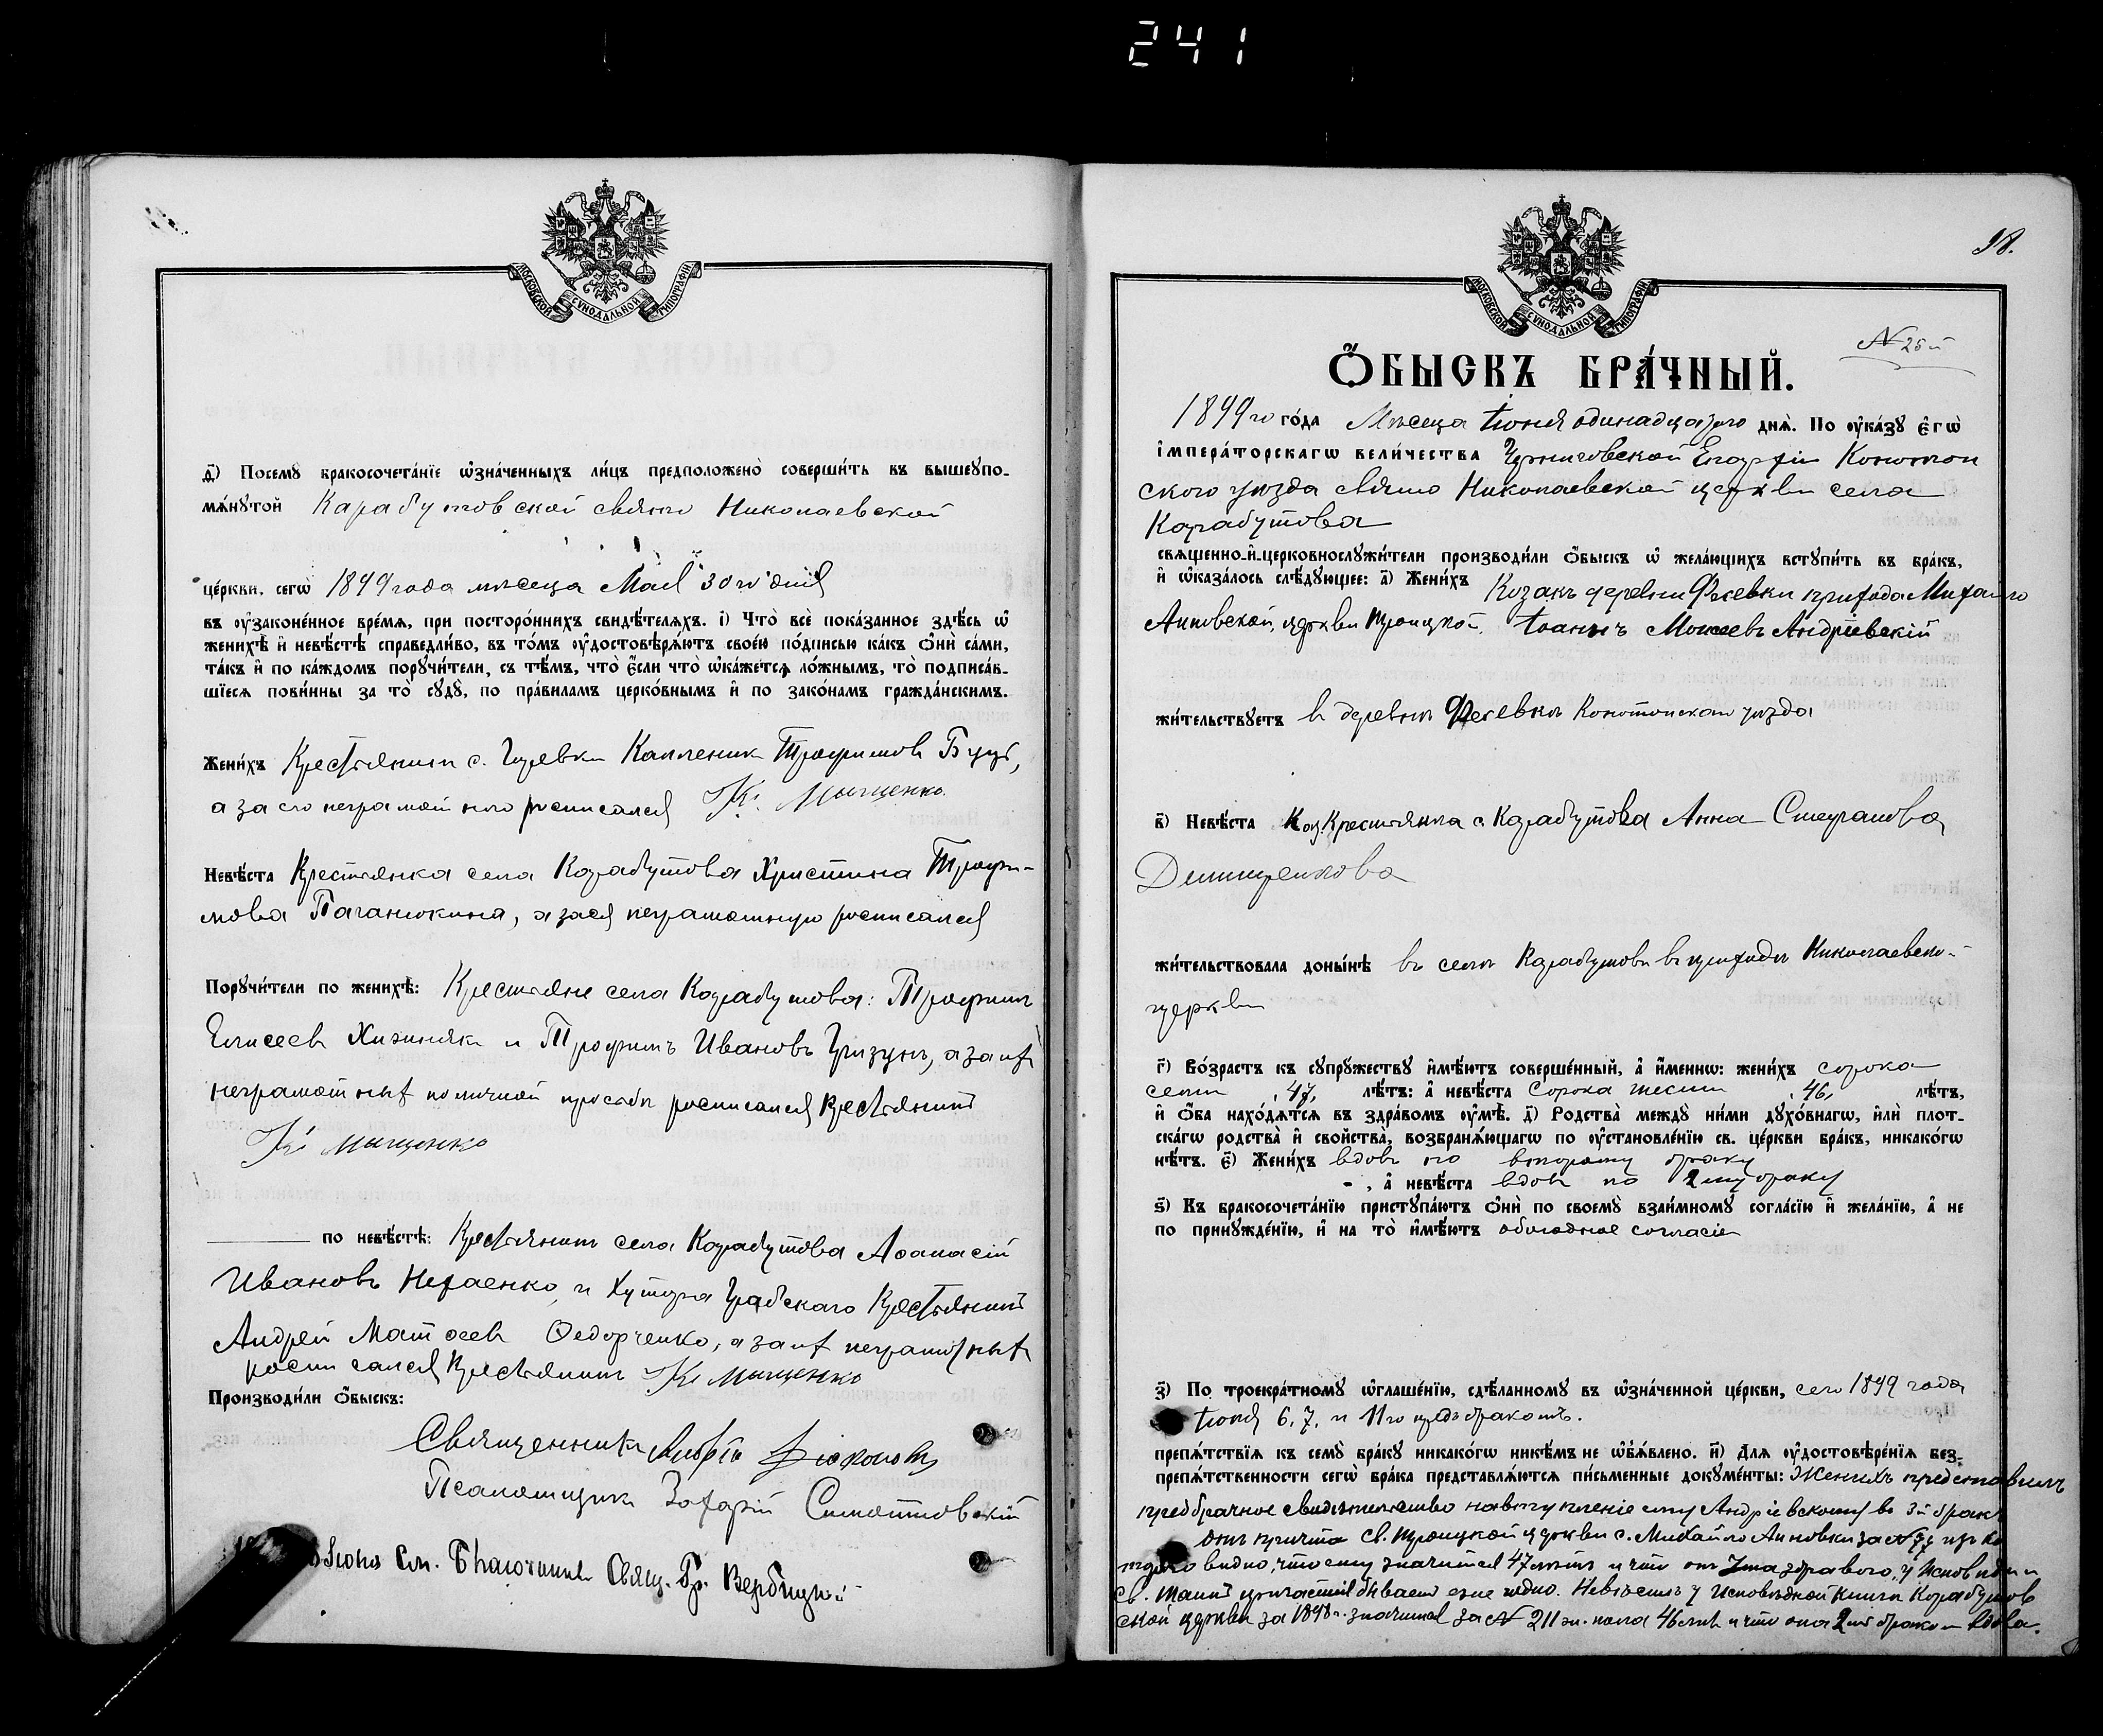 241
МОСКОВСКОЙ СѴНОДАЛЬНОЙ ТИПОГРАФІИ
д҃) Посемꙋ бракосочета́нїе ѡ҆зна́ченныхъ ли́цъ предположено̀ соверши́ть въ вышеꙋпо-
мѧ́нꙋтой Карабутовской свято Николаевской
це́ркви, сегѡ̀ 1899 года мѣсяца Мая 30го дня
въ ᲂу҆законе́нное вре́мѧ, при посторо́ннихъ свидѣ́телѧхъ. і҃) Что̀ всѐ пока́занное здѣ́сь ѡ҆
женихѣ̀ и҆ невѣ́стѣ справедли́во, въ то́мъ ᲂу҆достовѣрѧ́ютъ свое́ю по́дписью ка́къ ѻ҆нѝ са́ми,
та́къ и҆ по ка́ждомъ порꙋчи́тели, съ тѣ́мъ, что̀ є҆́сли что̀ ѡ҆ка́жетсѧ ло́жнымъ, то̀ подписа́в-
шїесѧ пови́нны за то̀ сꙋдꙋ̀, по пра́виламъ церко́внымъ и҆ по зако́намъ гражда́нскимъ.
Жени́хъ Крестьянин с. Гиревки Каленик Трофимов Буцъ,
а за его неграмотного росписался К. Мищенко
Невѣ́ста Крестьянка села Карабутова Христина Трофи-
мова Паганюкина, а за ея неграмотную росписался
Порꙋчи́тели по женихѣ̀: Крестьяне села Карабутова: Трофим
Елисеев Хизиняк и Трофимъ Ивановъ Гризун, а за их
неграмотных по личной просьбѣ росписался Крестьянин
К. Мищенко
по невѣ́стѣ: Крестьянин села Карабутова Аѳанасій
Ивановъ Нехаенко, и Хутора Грабскаго Крестьянин
Андрей Матѳеев Ѳедорченко, а за их неграмотных
росписался Крестьянин К. Мищенко
Производи́ли ѻ҆́быскъ:
Священникъ Андрій Діаконовъ
Псаломщик Захарій Симонтовскій
Іюня См. Благочинн. Свящ. Гр. Вербицкій
98.
МОСКОВСКОЙ СѴНОДАЛЬНОЙ ТИПОГРАФІИ
N 25й
Ѻ҆́БЫСКЪ БРА́ЧНЫЙ.
1899го го́да Мѣсяца Іюня одинадцатого днѧ̀. По ᲂу҆ка́зꙋ є҆гѡ̀
і҆мпера́торскагѡ вели́чества Черниговской Епархіи Конотоп
ского уѣзда свято Николаевской церкви села
Карабутова
свѧщенно-и҆-церковнослꙋжи́тели производи́ли ѻ҆́быскъ ѡ҆ жела́ющихъ встꙋпи́ть въ бра́къ,
и҆ ѡ҆каза́лось слѣ́дꙋющее: а҃) Жени́хъ Козакъ деревни Фесевки прихода Михайло
Анновской, церкви Троицкой, Іоаннъ Моисеевъ Андріевскій
жи́тельствꙋетъ в деревнѣ Фесевкѣ Конотопскаго уѣзда
в҃) Невѣ́ста Крестьянка с. Карабутова Анна Стефанова
Димитренкова
жи́тельствовала доны́нѣ въ селѣ Карабутовѣ в приходѣ Николаевской
церкви
г҃) Во́зрастъ къ сꙋпрꙋ́жествꙋ и҆мѣ́ютъ соверше́нный, а҆ и҆́менно: жени́хъ сорока
семи 47, лѣ́тъ: а҆ невѣ́ста сорока шести 46, лѣ́тъ,
и҆ ѻ҆́ба нахо́дѧтсѧ въ здра́вомъ ᲂу҆мѣ̀. д҃) Родства̀ междꙋ̀ ни́ми дꙋхо́внагѡ, и҆лѝ плот-
ска́гѡ родства̀ и҆ свойства̀, возбранѧ́ющагѡ по ᲂу҆становле́нїю св. це́ркви бра́къ, никако́гѡ
нѣ́тъ. є҃) Жени́хъ вдовъ по второму браку
, а҆ невѣ́ста вдова по 2му браку
ѕ҃) Къ бракосочета́нїю пристꙋпа́ютъ ѻ҆нѝ по своемꙋ̀ взаи́мномꙋ согла́сїю и҆ жела́нїю, а҆ не
по принꙋжде́нїю, и҆ на то̀ и҆мѣ́ютъ обоюдное согласіе
з҃) По троекра́тномꙋ ѡ҆глаше́нїю, сдѣ́ланномꙋ въ ѡ҆зна́ченной це́ркви, сего 1899 года
Іюня 6, 7, и 11го предъ бракомъ.
препѧ́тствїѧ къ семꙋ̀ бра́кꙋ никако́гѡ никѣ́мъ не ѡ҆б̾ѧ́влено. и҃) Длѧ ᲂу҆достовѣре́нїѧ без-
препѧ́тственности сегѡ̀ бра́ка представлѧ́ютсѧ пи́сьменные докꙋме́нты: Женихъ представилъ
предбрачное свидѣтельство на вступленіе ему Андріевскому въ 3й бракъ
отъ причта Св. Троицкой церкви с. Михайло Анновки за N 77 изъ ко
тораго видно, что ему значится 47 лѣтъ и что он ума здравого, у Исповѣди и
Св. Таинъ причастія бываетъ ежегодно. Невѣста у Исповѣдной книги Карабутов
ской церкви за 1898 г. значится за N 211 ж. пола 46 лѣтъ и что она 2мъ бракомъ вдова.